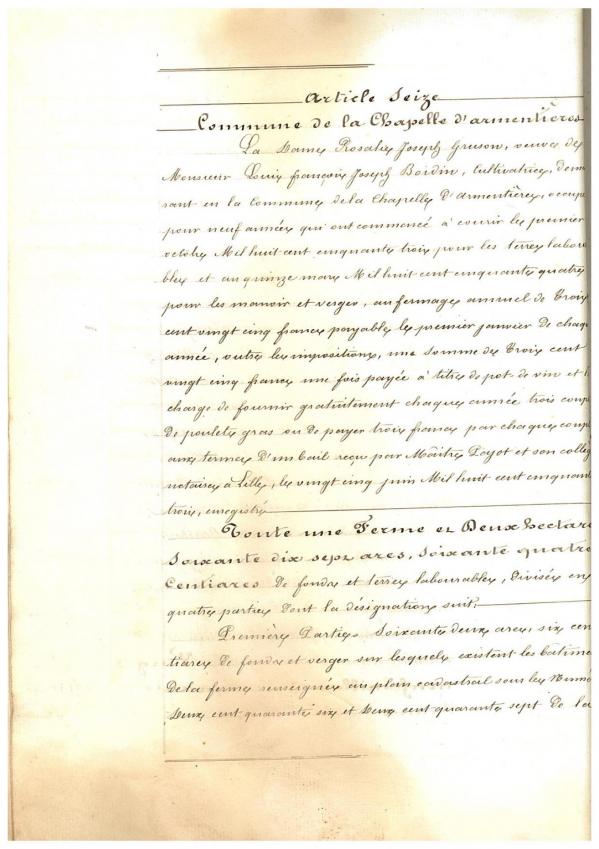 Article Seize
Commune de la Chapelle d'armentières
La Dame Rosalie Joseph Gruson, veuve de
Monsieur Louis françois Joseph Boidin, Cultivatrice, demeu
rant en la Commune de la Chapelle D'armentières, occupe
pour neuf années qui ont commencé à courir le premier
octobre Mil huit cent cinquante trois pour les terres labour
ables et au quinze mars Mil huit cent cinquante quatre
pour les manoir et verger, au fermage annuel de Trois
cent vingt cinq francs payable le premier janvier de chaque
année, outre les impositions, une somme de Trois cent
vingt cinq francs une fois payée à titre de pot-de vin et
charge de fournir gratuitement chaque année trois coup
de poulets gras ou de payer trois francs par chaque coup
aux termes d'un bail reçu par Maître et son collèg
notaires à Lille, le vingt cinq juin Mil huit cent cinquant
trois, enregistré
Toute une Ferme et Deux hectare
Soixante dix sept ares, soixante quatre
Centiares de fonds et terres labourables, Divisée en
quatre parties dont la désignation suit,
Première Partie. Soixante deux ares, six cen
tiares de fonds et verger sur lesquels existent les bâtime
De la ferme renseignée au plan cadastral sous les Numé
Deux cent quarante six et Deux cent quarante sept de la